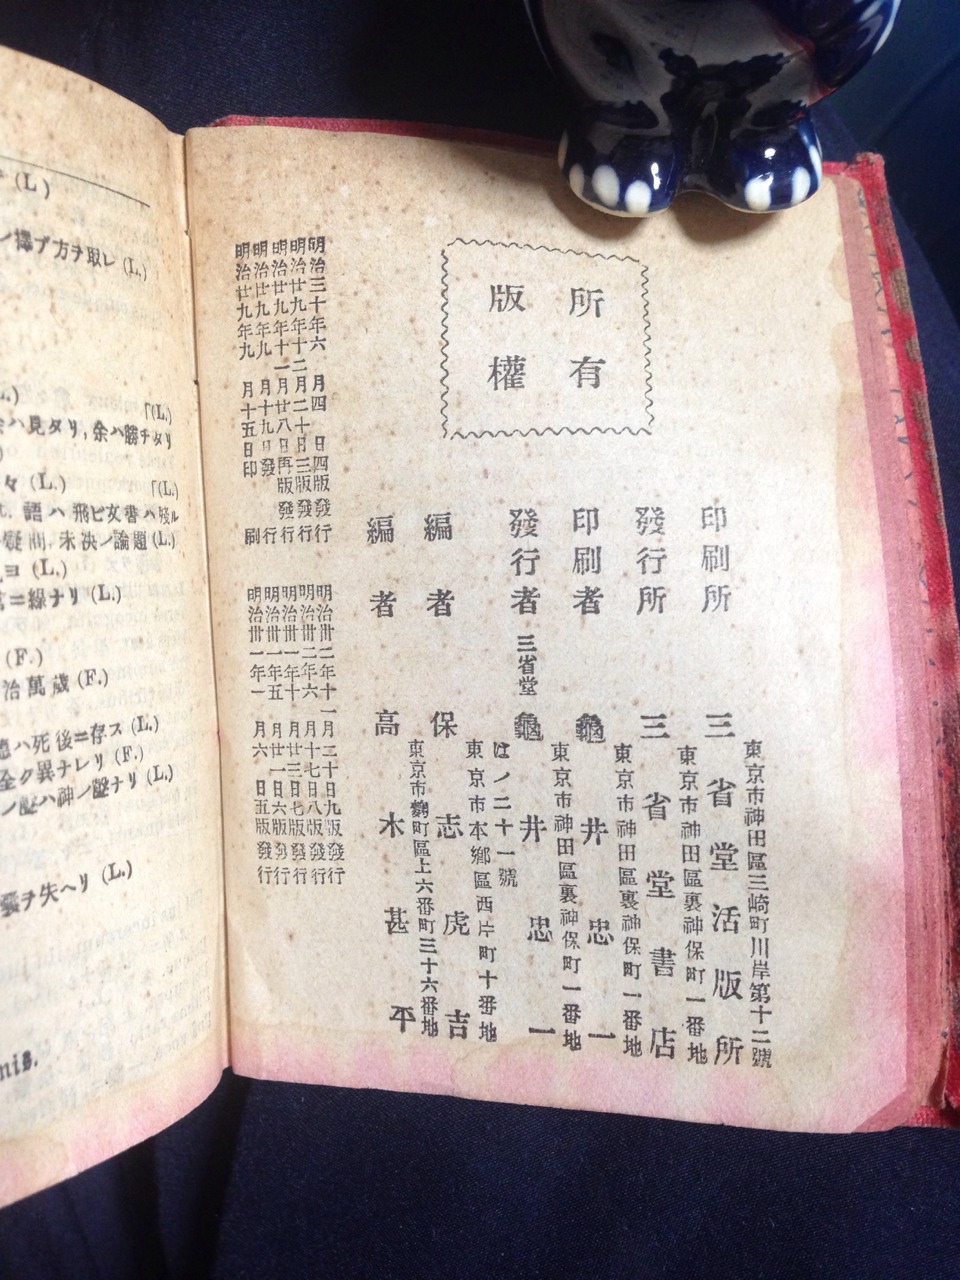 (L)
ノ擇ブ方ヲ取レ (L.)
「(L.)
余ハ見タリ, 余ハ勝チタリ
々 (L.)
「(L.)
語ハ飛ビ文書ハ殘ル
疑問, 未決ノ論題 (L.)
ヨ (L.)
ニ綠ナリ (L.)
(F.)
治萬歲 (F.)
ハ死後ニ存ス (L.)
全ク異ナレリ (F.)
ノ聲ハ神ノ聲ナリ (L.)
ヲ失ヘリ (L.)
nis.
版權
所有
明治廿九年九月十五日印刷
明治廿九年九月十九日發行
明治廿九年十一月廿八日再版發行
明治廿九年十二月二十日三版發行
明治三十年六月四日四版發行
明治卅一年一月六日五版發行
明治卅一年五月廿一日六版發行
明治卅一年十月廿三日七版發行
明治卅二年六月十七日八版發行
明治卅二年十一月二十日九版發行
編者 高木甚平
東京市麴町區上六番町三十六番地
編者 保志虎吉
東京市本鄕區西片町十番地
はノ二十一號
發行者 三省堂 龜井忠一
東京市神田區裏神保町一番地
印刷者 龜井忠一
東京市神田區裏神保町一番地
發行所 三省堂書店
東京市神田區裏神保町一番地
印刷所 三省堂活版所
東京市神田區三崎町川岸第十二號